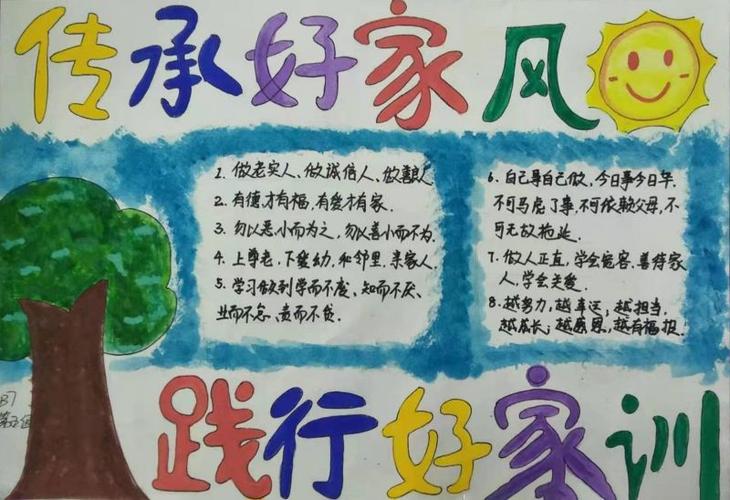 传承好家风
1. 做老实人、做诚信人、做善良人
2. 有德才有福,有爱才有家.
3. 勿以恶小而为之,勿以善小而不为.
4. 上尊老,下爱幼,和邻里,亲家人.
5. 学习做到学而不废、知而不厌、
业而不怠、而不负.
6. 自己事自己做,今日事今日毕.
不可马虎了事,不可依赖父母,不
可无故拖延.
7. 做人正直,学会宽容,善待家
人,学会关爱.
8. 越努力,越幸运;越担当,
越成长;越感恩,越有福报.
践行好家训